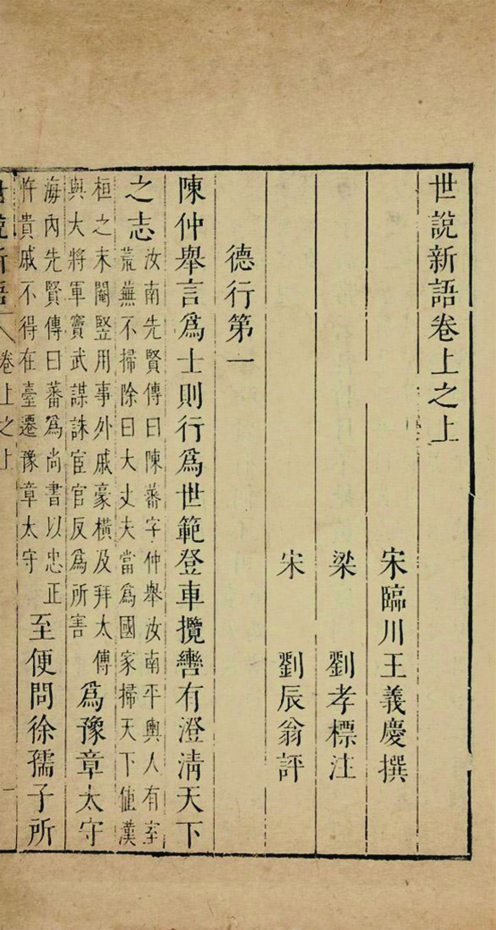 世說新語卷上之上
宋臨川王義慶撰
梁 劉孝標注
宋 劉辰翁評
德行第一
陳仲舉言爲士則行爲世範登車攬轡有澄淸天下
之志
汝南先賢傳曰陳蕃字仲舉汝南平輿人有室
荒蕪不掃除曰大丈夫當爲國家掃天下値漢
桓之末閹竪用事外戚豪橫及拜太傅
與大將軍竇武謀誅宦官反爲所害
爲豫章太守
海內先賢傳曰蕃爲尚書以忠正
忤貴戚不得在臺遷豫章太守
至便問徐孺子所
世說新語 卷上之上 一